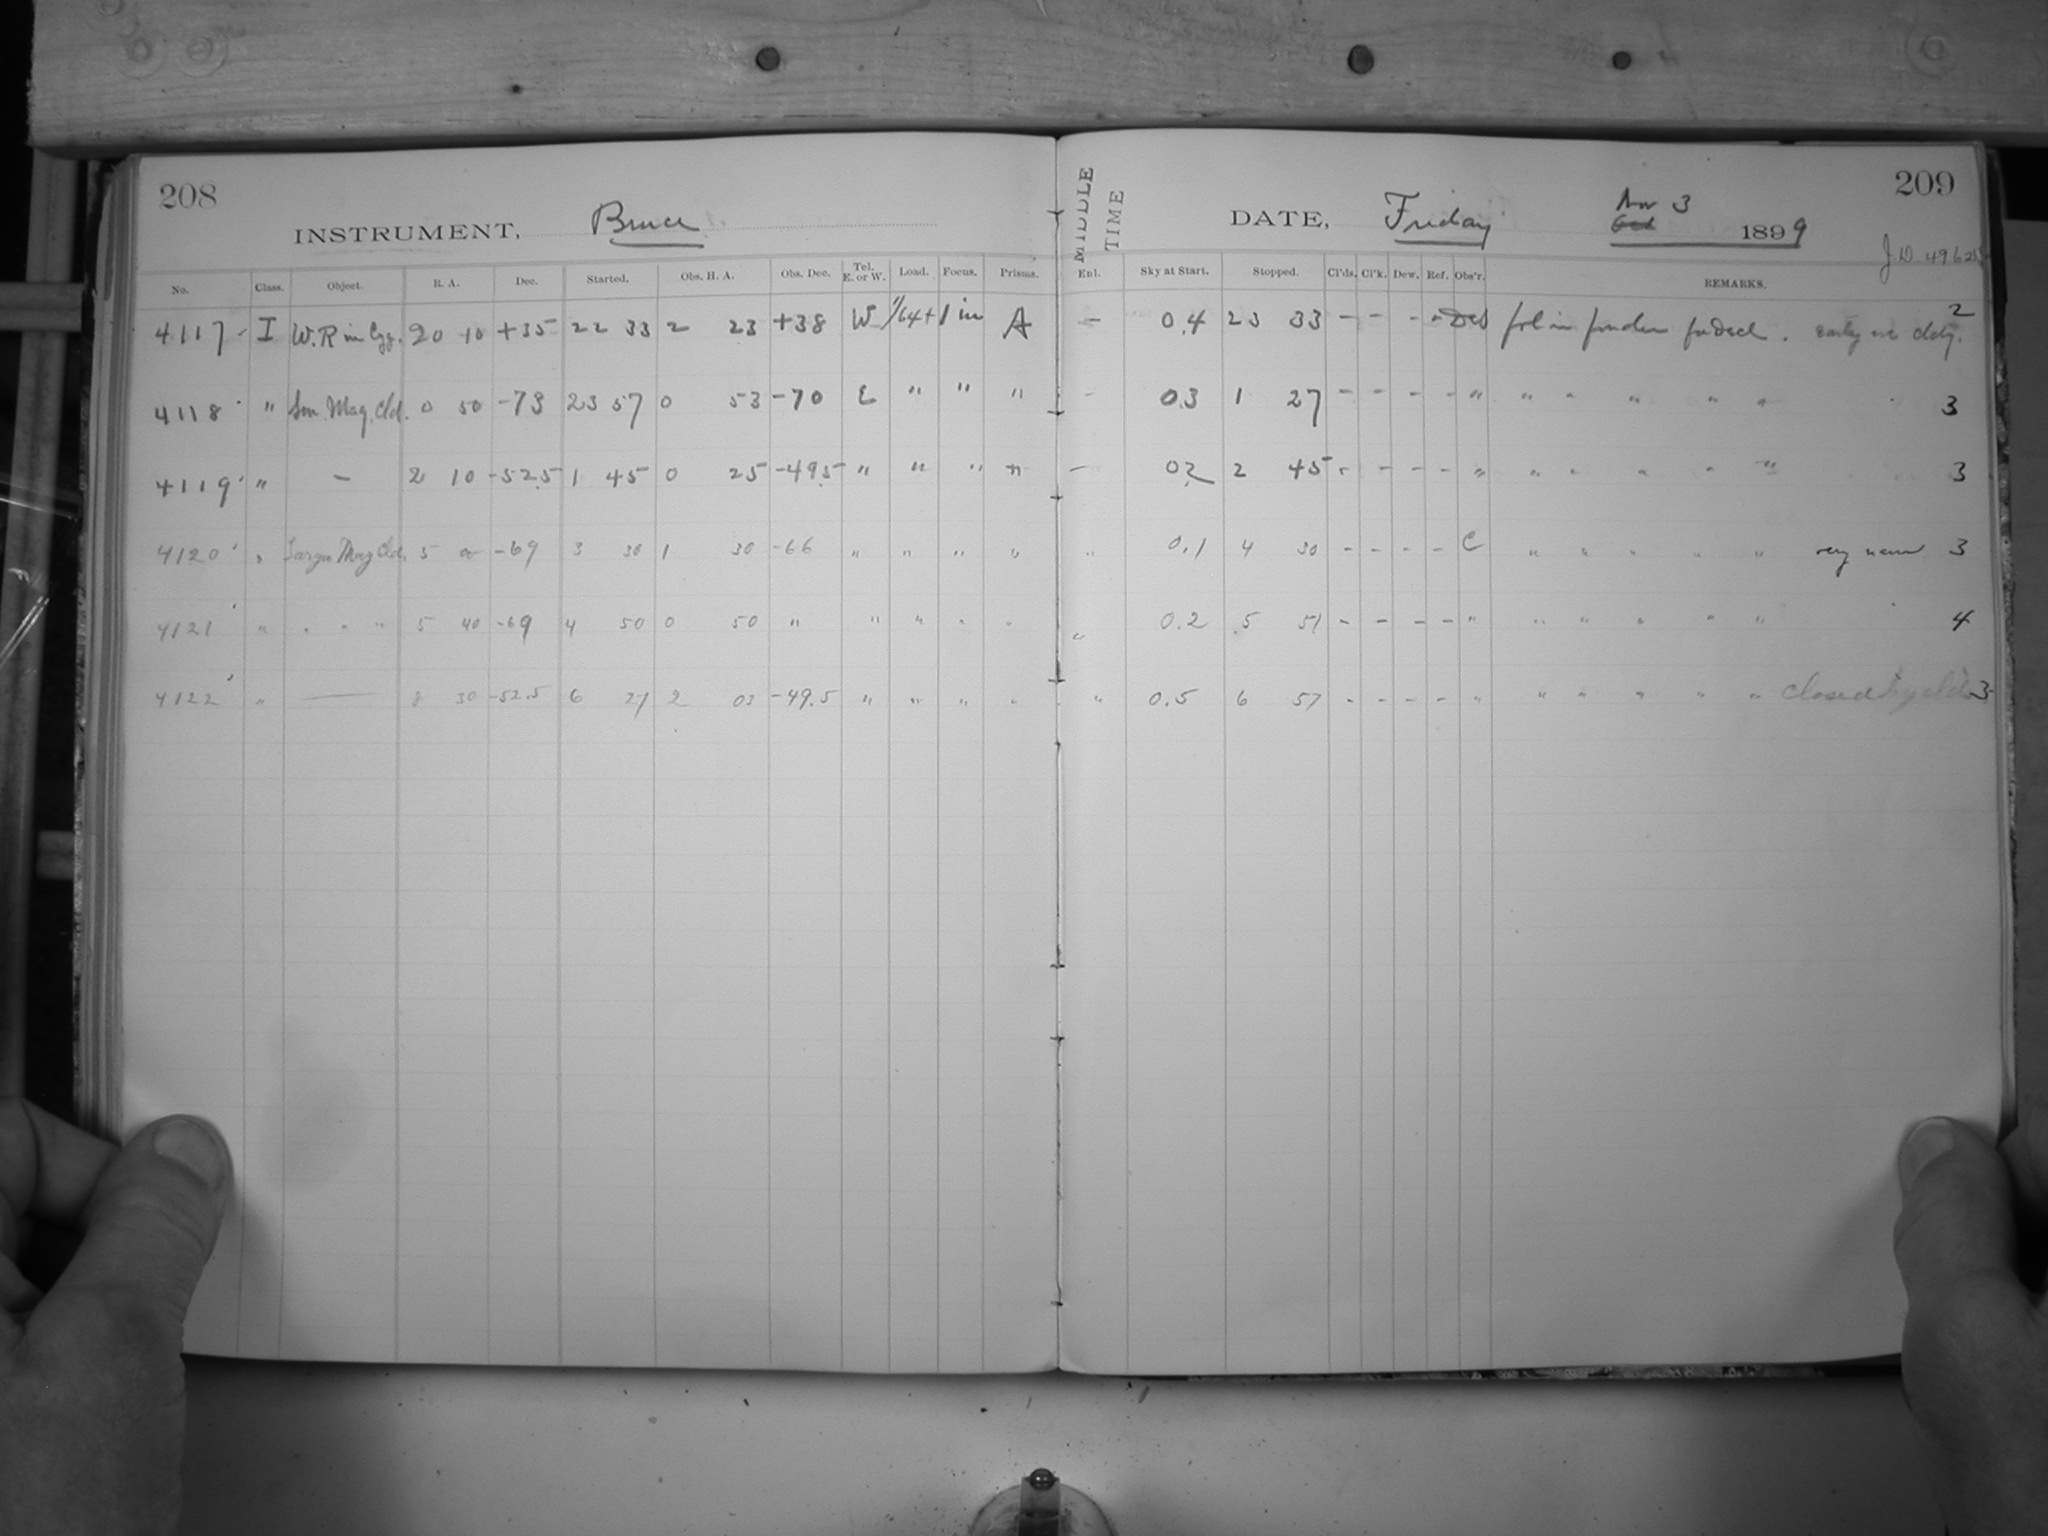 208
INSTRUMENT, Bruce
No. Class. Object. R. A. Dec. Started. Obs. H. A. Obs. Dec. Tel. E. or W. Load. Focus. Prisms.
4117 I W.R in Cyg. 20 10 +35 22 33 2 23 +38 W 1/64+ 1 in A
4118 " Sm. Mag. Cld. 0 50 -73 23 57 0 53 -70 E " " "
4119 " - 2 10 -52.5 1 45 0 25 -49.5 " " " "
4120 " Large Mag Cld. 5 00 -69 3 30 1 30 -66 " " " "
4121 " " " " 5 40 -69 4 50 0 50 " " " " "
4122 " — 8 30 -52.5 6 27 2 03 -49.5 " " " "
209
MIDDLE TIME
DATE, Friday Nov 3 Oct 1899
J.D. 4962
Enl. Sky at Start. Stopped. Cl'ds. Cl'k. Dew. Ref. Obs'r. REMARKS.
- 0.4 23 33 - - - - fol in finder for Decl. 2
- 0.3 1 27 - - - - " " " " " " 3
- 0.2 2 45 - - - - " " " " " " 3
" 0.1 4 30 - - - - C " " " " " very 3
" 0.2 5 51 - - - - " " " " " " 4
" 0.5 6 57 - - - - " " " " " " Closed by clds 3